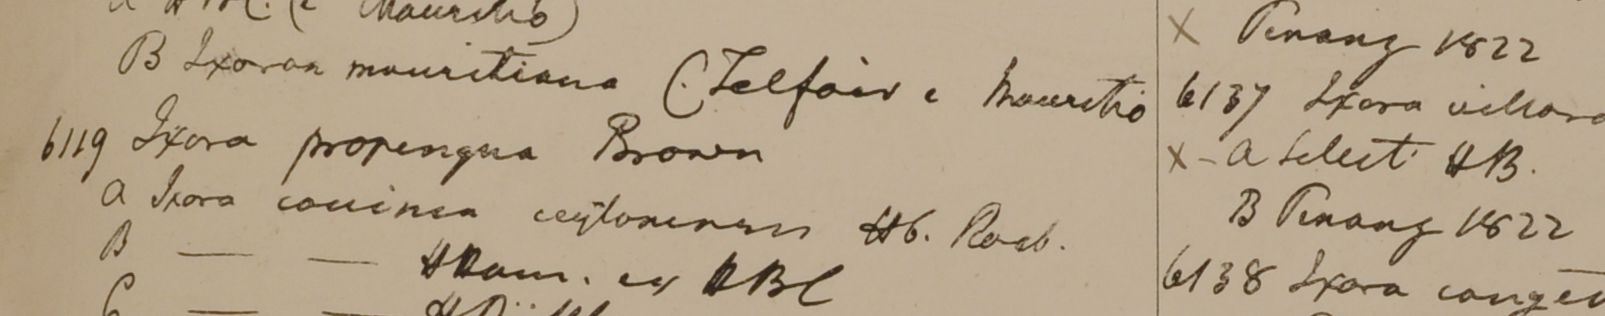 (e Mauritio)
B Ixoran mauritiana (Telfair e Mauritio
6119 Ixora propengua Brown
a Ixora coccinea ceylonensis Hb. Roxb.
B — — HHam. ex HBC
C — —
X Penang 1822
6137 Ixora villosa
X - a Select HB.
B Penang 1822
6138 Ixora conget